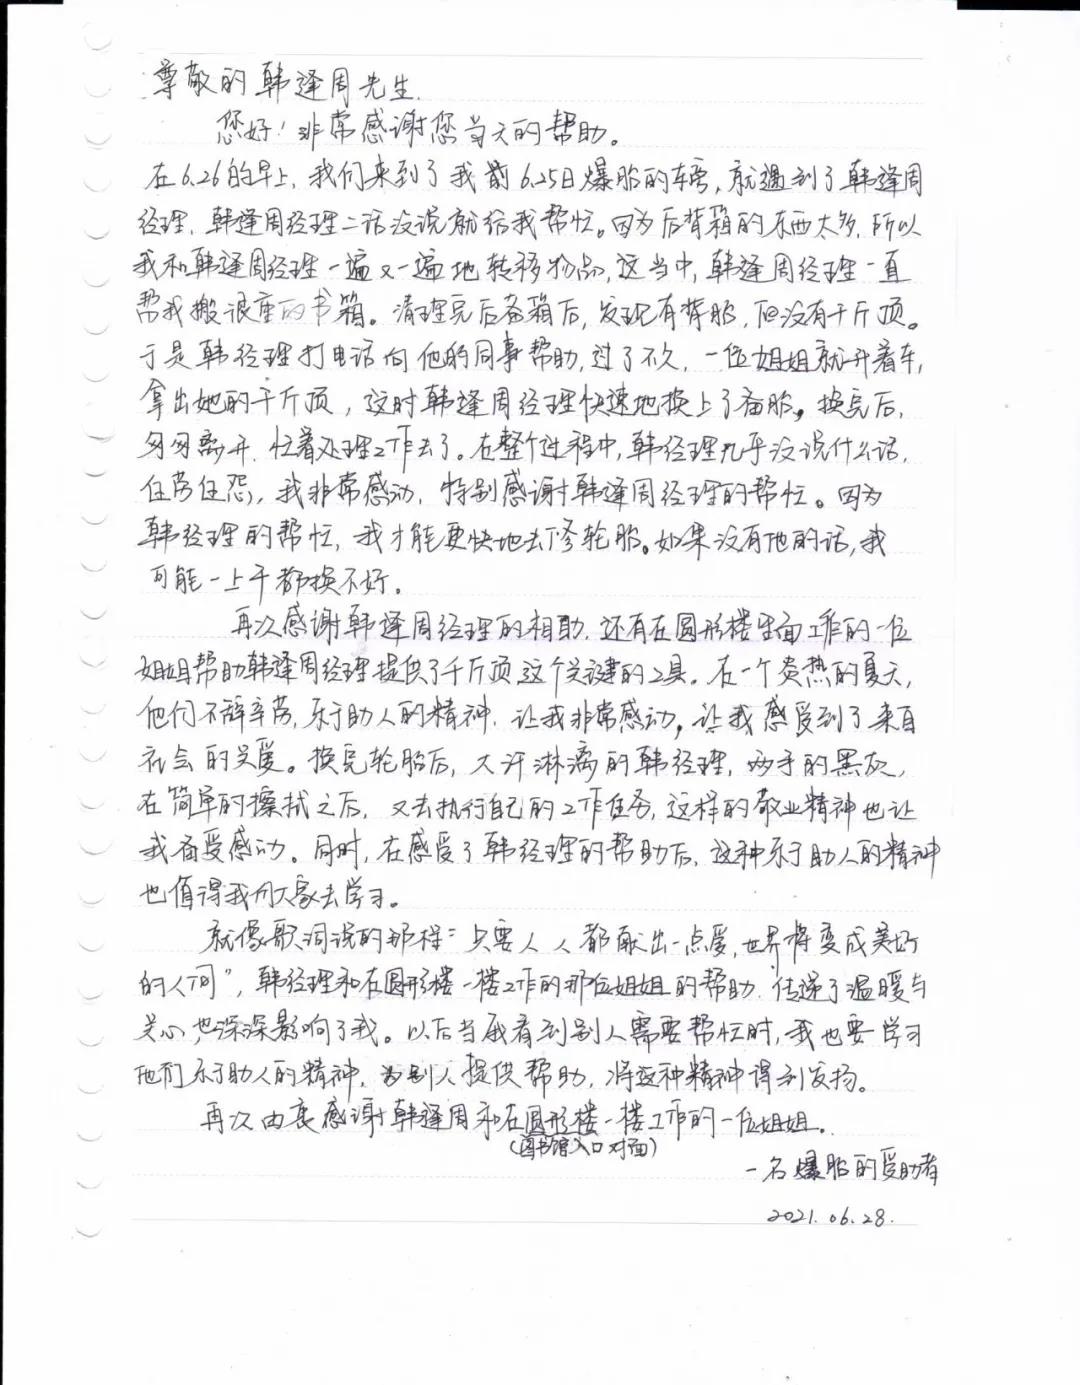 尊敬的韩逢周先生.
您好！非常感谢您当天的帮助。
在6.26的早上,我们来到了我前6.25日爆胎的车旁,就遇到了韩逢周
经理,韩逢周经理二话没说就给我帮忙。因为后背箱的东西太多,所以
我和韩逢周经理一遍又一遍地转移物品,这当中,韩逢周经理一直
帮我搬很重的书箱。清理完后备箱后,发现有背胎,但没有千斤顶。
于是韩经理打电话向他的同事帮助,过了不久,一位姐姐就开着车,
拿出她的千斤顶,这时韩逢周经理快速地换上了备胎。换完后,
匆匆离开,忙着处理工作去了。在整个过程中,韩经理几乎没说什么话,
任劳任怨,我非常感动,特别感谢韩逢周经理的帮忙。因为
韩经理的帮忙,我才能更快地去修轮胎。如果没有他的话,我
可能一上午都换不好。
再次感谢韩逢周经理的相助,还有在圆形楼里面工作的一位
姐姐帮助韩逢周经理提供了千斤顶这个关键的工具。在一个炎热的夏天,
他们不辞辛劳,乐于助人的精神,让我非常感动,让我感受到了来自
社会的关爱。换完轮胎后,大汗淋漓的韩经理,两手的黑灰,
在简单的擦拭之后,又去执行自己的工作任务,这样的敬业精神也让
我备受感动。同时,在感受了韩经理的帮助后,这种乐于助人的精神
也值得我们大家去学习。
就像歌词说的那样"只要人人都献出一点爱,世界将变成美好
的人间",韩经理和在圆形楼一楼工作的那位姐姐的帮助,传递了温暖与
关心,也深深影响了我。以后当我看到别人需要帮忙时,我也要学习
他们乐于助人的精神,为别人提供帮助,将这种精神得到发扬。
再次由衷感谢韩逢周和在圆形楼一楼工作的一位姐姐.
(图书馆入口对面)
一名爆胎的受助者
2021.06.28.